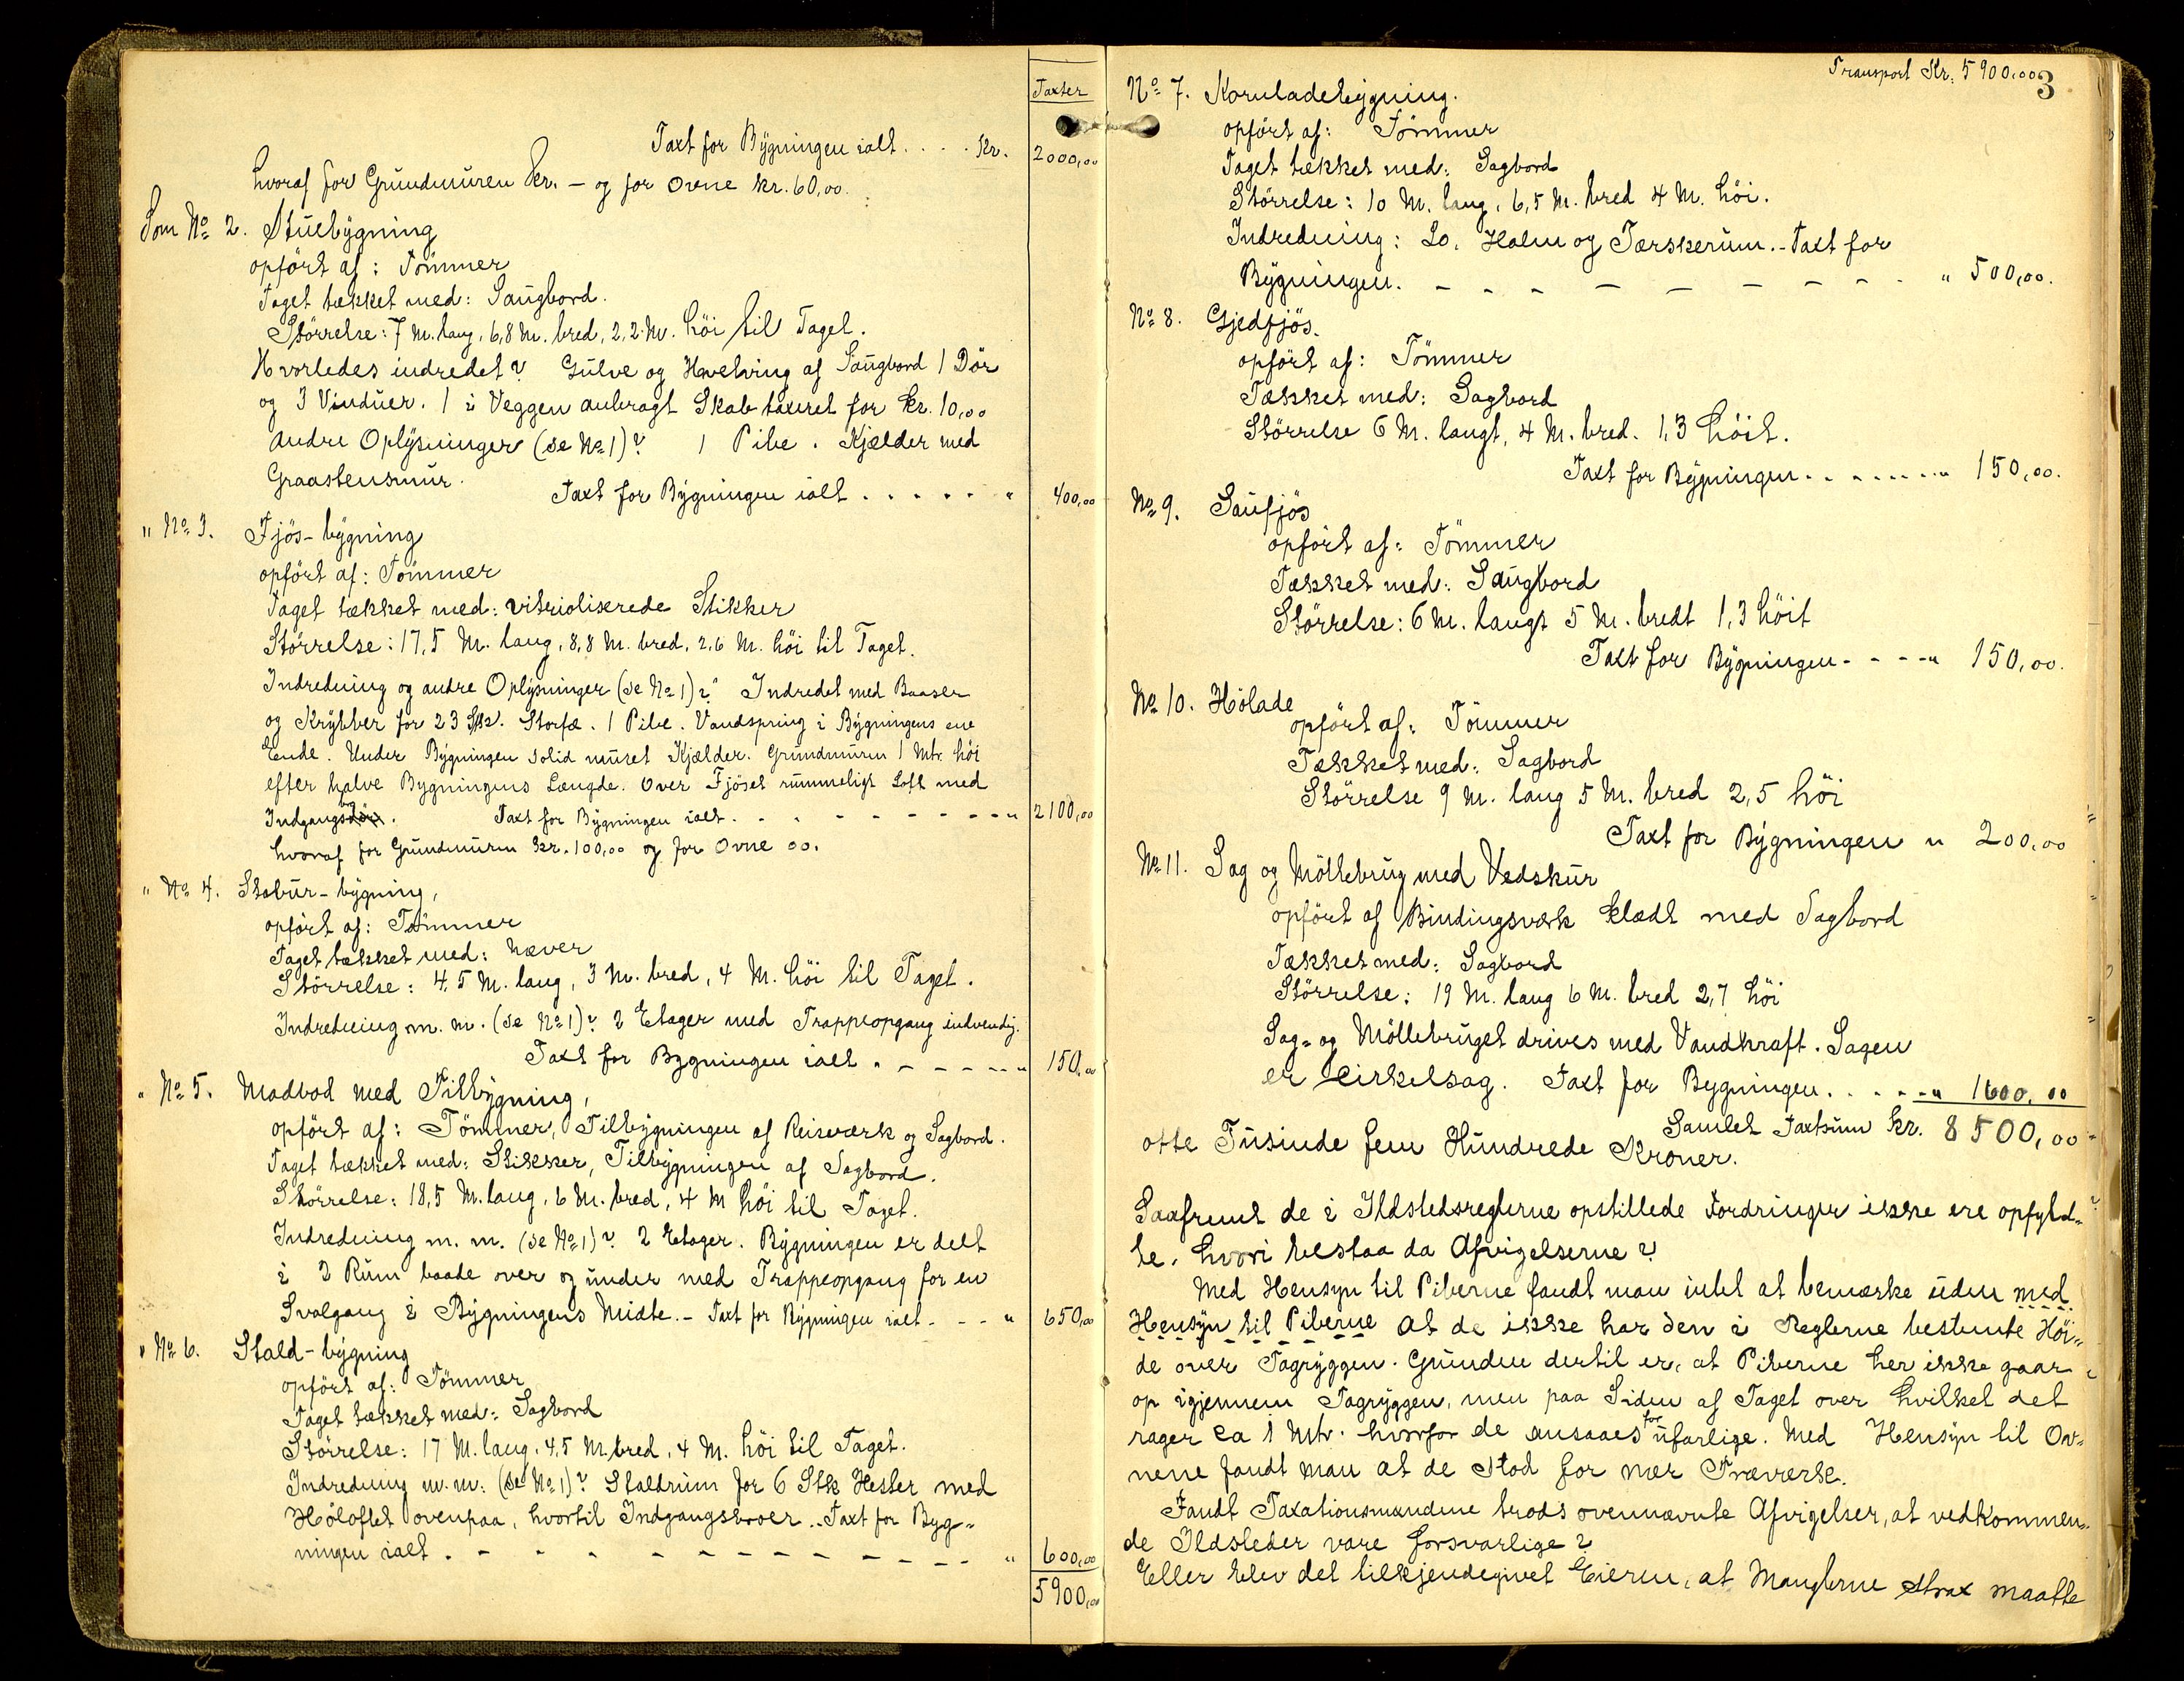 Taxter
Taxt for Bygningen ialt . . . . Kr. 2000,00
hvoraf for Grundmuren Kr. – og for Ovne Kr. 60,00.
Som No 2. Stuebygning
opført af: Tømmer
Taget tækket med: Saugbord.
Størrelse: 7 M. lang, 6,8 M. bred, 2,2 M. høi til Taget.
Hvorledes indredet? Gulve og Hvelving af Saugbord 1 Dør
og 3 Vinduer. 1 i Veggen anbragt Skab taxeret for Kr. 10,00
Andre Oplysninger (se No 1)? 1 Pibe. Kjælder med
Graastensmur. Taxt for Bygningen ialt . . . . . " 400,00
" No 3. Fjøs-bygning
opført af: Tømmer
Taget tækket med: vitrioliserede Stikker
Størrelse: 17,5 M. lang, 8,8 M. bred, 2,6 M. høi til Taget.
Indredning og andre Oplysninger (se No 1)? Indredet med Baaser
og Krybber for 23 Stk. Storfæ. 1 Pibe. Vandspring i Bygningens ene
Ende. Under Bygningen solid muret Kjælder. Grundmuren 1 Mtr. høi
efter halve Bygningens Længde. Over Fjøset rummeligt Loft med
Indgangsbro. Taxt for Bygningen ialt . - - - - - - - - " 2100,00
hvoraf for Grundmuren Kr. 100,00 og for Ovne 00.
" No 4. Stabur-bygning,
opført af: Tømmer
Taget tækket med: Næver
Størrelse: 4,5 M. lang, 3 M. bred, 4 M. høi til Taget.
Indredning m. m. (se No 1)? 2 Etager med Trappeopgang indvendig.
Taxt for Bygningen ialt . - - - - - " 150,00
" No 5. Madbod med Tilbygning,
opført af: Tömmer, Tilbygningen af Reisværk og Sagbord.
Taget tækket med: Stikker, Tilbygningen af Sagbord.
Størrelse: 18,5 M. lang, 6 M. bred, 4 M høi til Taget.
Indredning m. m. (se No 1)? 2 Etager. Bygningen er delt
i 2 Rum baade over og under med Trappeopgang for en
Svalgang i Bygningens Midte. - Taxt for Bygningen ialt - - - " 650,00
" No 6. Stald-bygning
opført af: Tömmer
Taget tækket med: Sagbord
Størrelse: 17 M. lang, 4,5 M. bred, 4 M. høi til Taget.
Indredning m. m. (se No 1)? Staldrum for 6 Stk Hester med
Høloftet ovenpaa, hvortil Indgangsbroer. - Taxt for Byg-
ningen ialt . - - - - - - - - - - - " 600,00
5900,00
Transport Kr. 5900,00
3
No 7. Kornladebygning.
opført af: Tömmer
Taget tækket med: Sagbord
Størrelse: 10 M. lang, 6,5 M. bred 4 M. høi.
Indredning: Lo, Halm og Tærskerum. - Taxt for
Bygningen. - - - - - - - - - " 500,00.
No 8. Gjedfjös.
opført af: Tömmer
Tækket med: Sagbord
Størrelse 6 M. langt, 4 M. bred. 1,3 høit.
Taxt for Bygningen . . . . . . . . " 150,00.
No 9. Saufjös
opført af: Tömmer
Tækket med: Saugbord
Størrelse: 6 M. langt 5 M. bredt 1,3 höit
Taxt for Bygningen - - - - " 150,00.
No 10. Hölade
opført af: Tömmer
Tækket med: Sagbord
Størrelse 9 M. lang 5 M. bred 2,5 høi
Taxt for Bygningen " 200,00
No 11. Sag og Möllebrug med Vedskur
opfört af Bindingsværk klædt med Sagbord
Tækket med: Sagbord
Størrelse: 19 M. lang 6 M. bred 2,7 høi
Sag- og Möllebruget drives med Vandkraft. Sagen
er Cirkelsag. Taxt for Bygningen . . . . - " 1600,00
Samlet Taxtsum Kr. 8500,00
otte Tusinde fem Hundrede Kroner.
Saafremt de i Ildstedsreglerne opstillede Fordringer ikke ere opfyld-
te, hvori bestaa da Afvigelserne?
Med Hensyn til Piberne fandt man intet at bemærke uden med
Hensyn til Piberne at de ikke har den i Reglerne bestemte Höi-
de over Tagryggen. Grunden dertil er, at Piberne her ikke gaar
op igjennem Tagryggen, men paa Siden af Taget over hvilket det
rager ca 1 Mtr. hvorfor de ansaaes for ufarlige. Med Hensyn til Ov-
nene fandt man at de stod for nær Træværk.
Fandt Taxationsmændene trods ovennævnte Afvigelser, at vedkommen-
de Ildsteder vare forsvarlige?
Eller blev det tilkjendegivet Eieren, at Manglerne strax maatte